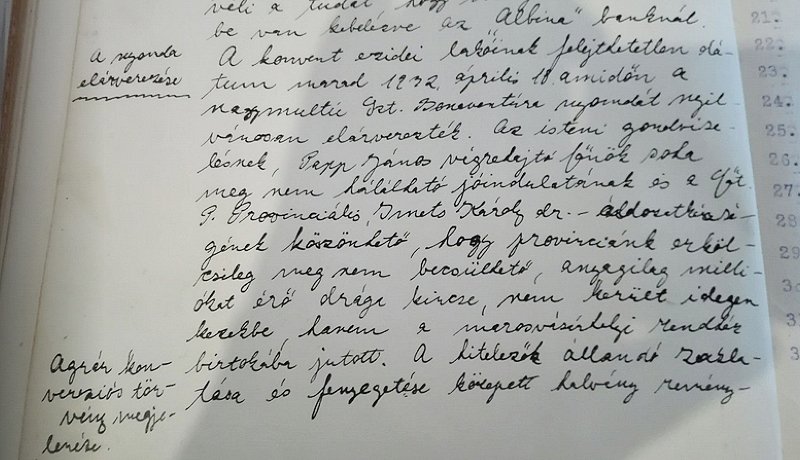 veli a tudat, hogy
be van kebelezve az "Albina" banknál.
A nyomda
elárverezése
A konvent ezidei lakóinak felejthetetlen dá-
tum marad 1932. április 18. amidőn a
nagymultú Szt. Bonaventura nyomdát nyil-
vánosan elárverezték. Az isteni gondvise-
lésnek, Papp János végrehajtó főnök soha
meg nem hálálható jóindulatának és a Főt.
P. Provinciális, Imets Károly dr. – áldozatkészsé-
gének köszönhető, hogy provinciánk erköl-
csileg meg nem becsülhető, anyagilag milli-
ókat érő drága kincse, nem került idegen
kezekbe, hanem a marosvásárhelyi rendház
birtokába jutott. A hitelezők állandó zakla-
tása és fenyegetése közepett halvány remény-
Agrár kon-
verziós tör-
vény megje-
lenése.
21.
22.
23.
24.
25.
26.
27.
28
29
30
3
3